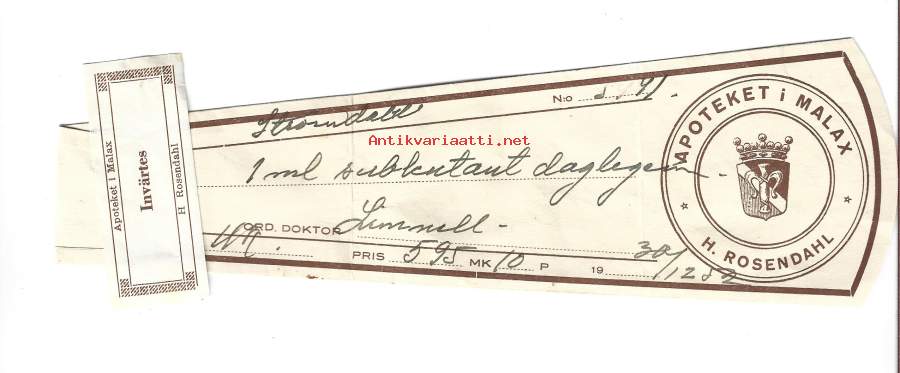 Apoteket i Malax
Invärtes
H Rosendahl
N:o
Antikvariaatti.net
1 ml subkutant dagligen.
ORD. DOKTOR Limnell-
PRIS 595 MK 10 P 19 30/12 52
APOTEKET i MALAX
H. ROSENDAHL